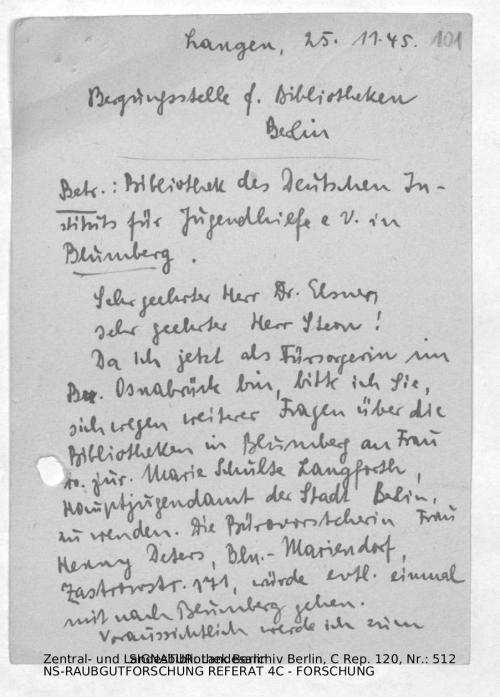 Langen, 25. 11.45. 101
Bergungsstelle f. Bibliotheken
Berlin
Betr.: Bibliothek des Deutschen In-
stituts für Jugendhilfe e V. in
Blumberg.
Sehr geehrter Herr Dr. Elsner,
sehr geehrter Herr Stern!
Da ich jetzt als Fürsorgerin im
Bez. Osnabrück bin, bitte ich Sie,
sich wegen weiterer Fragen über die
Bibliotheken in Blumberg an Frau
Dr. jur. Marie Schulte Langforth,
Hauptjugendamt der Stadt Berlin,
zu wenden. Die Bürovorsteherin Frau
Henny Deters, Bln.-Mariendorf,
Zastrowstr. 171, würde evtl. einmal
mit nach Blumberg gehen.
Voraussichtlich werde ich zum
Zentral- und Landesbibliothek Berlin
Landesarchiv Berlin, C Rep. 120, Nr.: 512
NS-RAUBGUTFORSCHUNG REFERAT 4C - FORSCHUNG